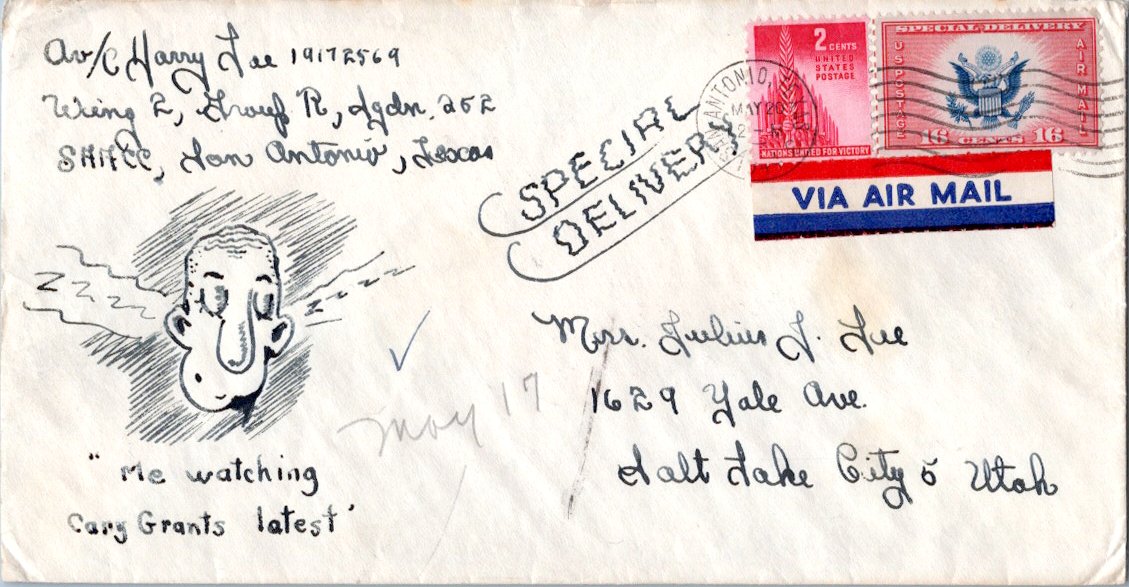 Av/C Harry Lee 19172569
Wing 2, Group R, Sqdn. 252
SAACC, San Antonio, Texas
SPECIAL
DELIVERY
SAN ANTONIO,
MAY 20
2 CENTS
UNITED
STATES
POSTAGE
NATIONS UNITED FOR VICTORY
SPECIAL DELIVERY
US POSTAGE
AIR MAIL
16 CENTS 16
VIA AIR MAIL
Z Z Z Z
Z Z Z Z
"Me watching
Cary Grants latest'
May 17
Mrs. Julius J. Lee
1629 Yale Ave.
Salt Lake City 5 Utah